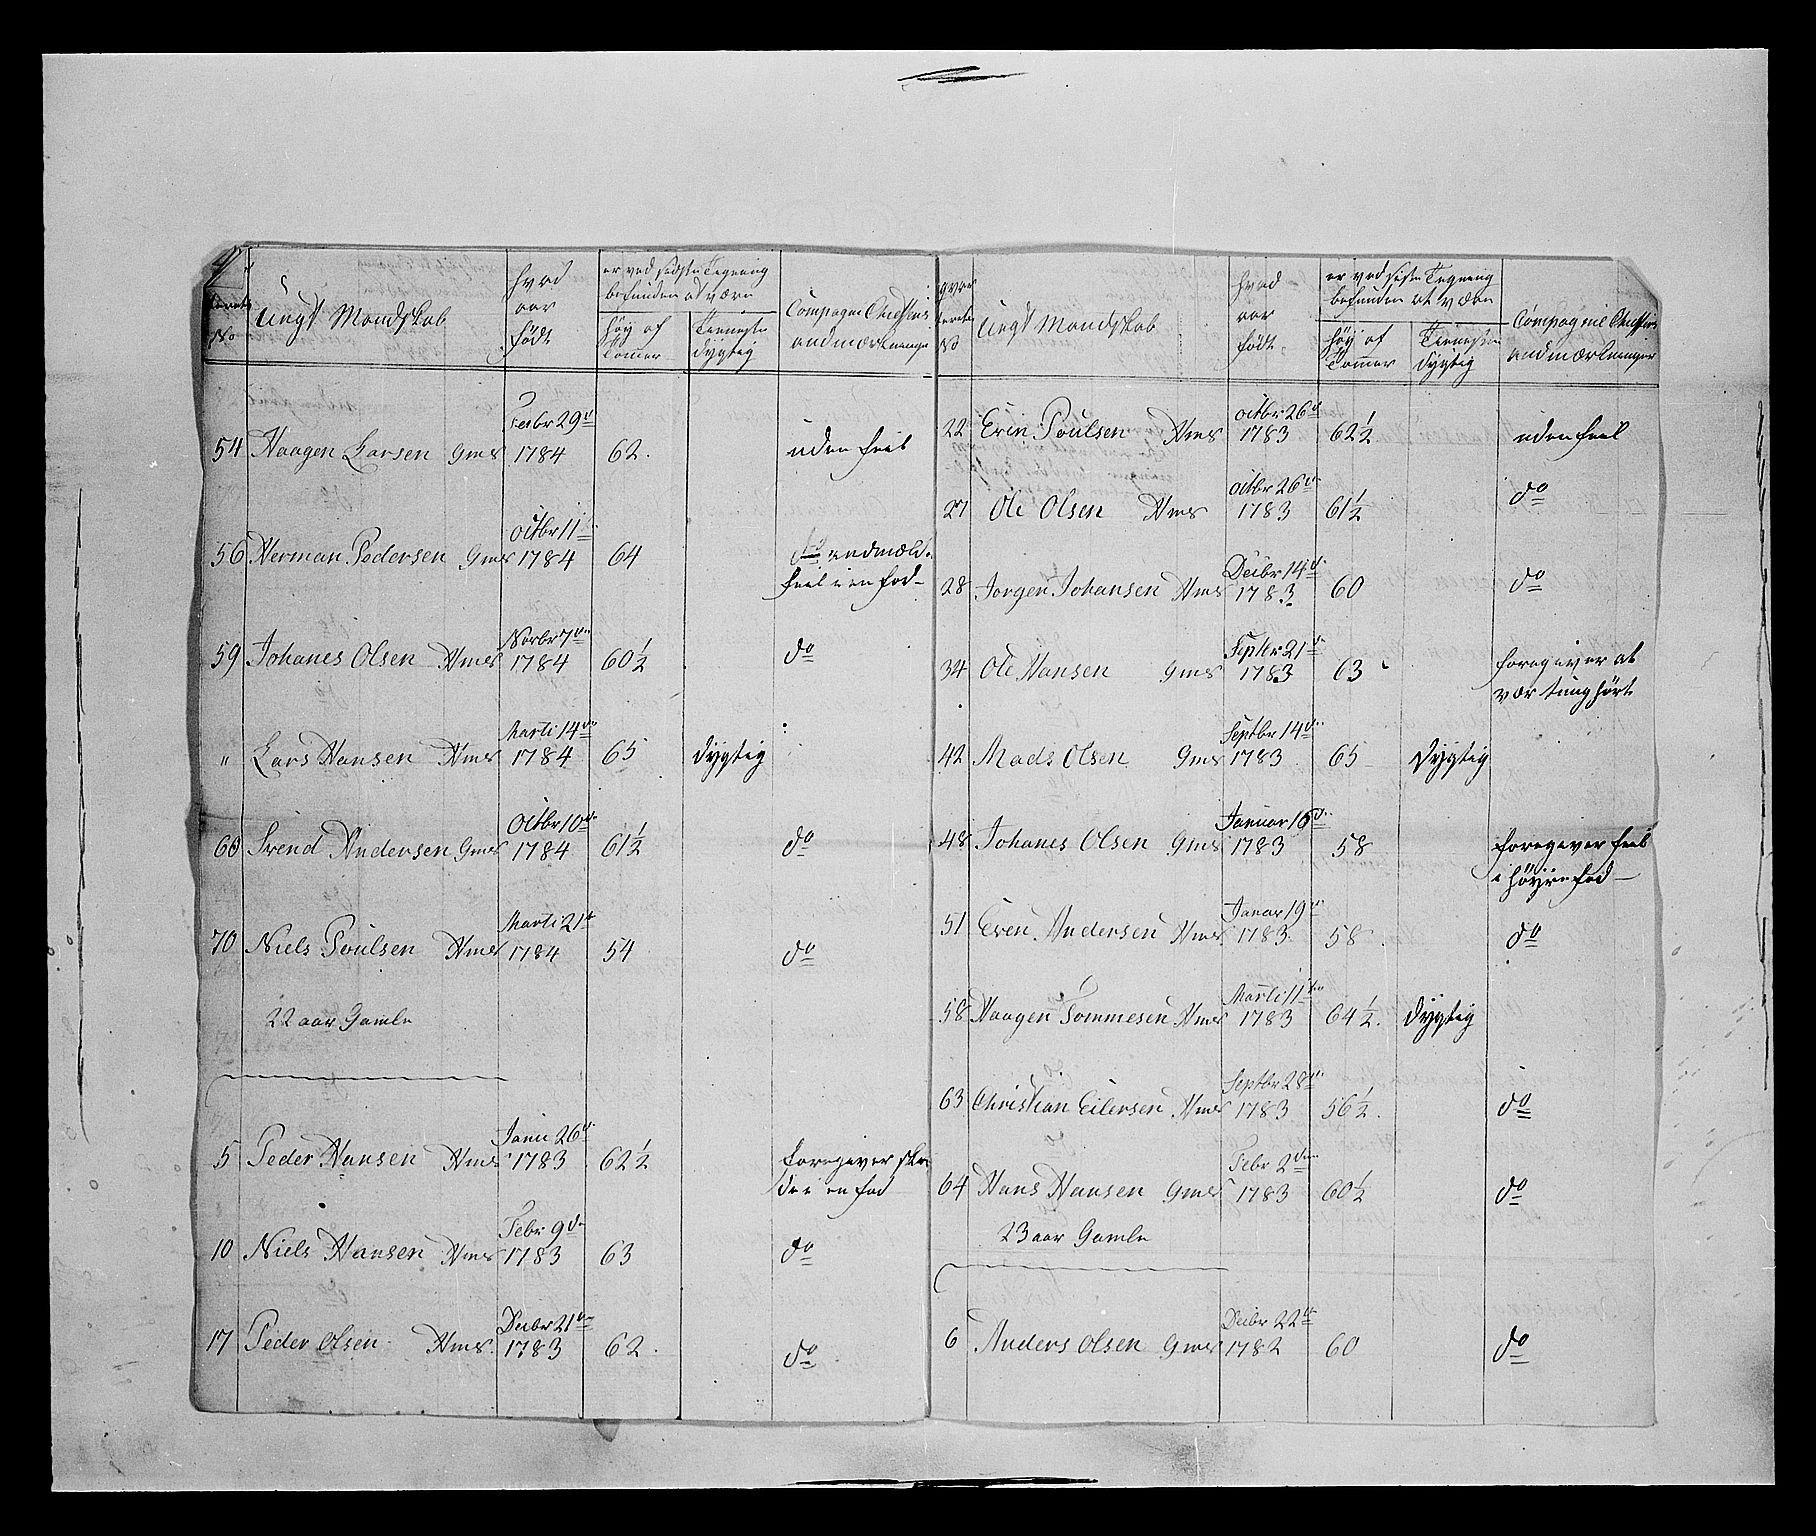 Ungt Mandskab
hvad
aar
født
er ved sidste Tegning
befunden at være
høy af
Tommer
Tienneste
dygtig
Compagnie Cheffens
andmærkninge
54 Haagen Larsen Gms Febr 29d 1784 62. uden feil
56 Herman Pedersen Gms Octbr 11 1784 64 do andmæld.
feil i en fod
59 Johanes Olsen Hms Novbr 7de 1784 60 1/2 do
" Lars Hansen Hms Marti 14de 1784 65 dygtig
60 Svend Andersen Gms Octbr 10de 1784 61 1/2 do
70 Niels Poulsen Hms Marti 21d 1784 54 do
22 aar Gamle
5 Peder Hansen Hms Janu 26d 1783 62 1/2 foregiver ska
de i en fod
10 Niels Hansen Hms Febr 9de 1783 63 do
17 Peder Olsen Hms. Decbr 21de 1783 62. do
hver
No
Ungt Mandskab
hvad
aar
født
er ved siste Tegning
befunden at være
høy af
Tommer
Tienneste
dygtig
Compagnie Cheffens
andmærkninger
22 Even Poulsen Hms Octbr 26d 1783 62 1/2 uden feil
27 Ole Olsen Hms Octbr 26de 1783 61 1/2 do
28 Jørgen Johansen Hms Decbr 14d 1783 60 do
34 Ole Hansen Gms Septbr 21d 1783 63 foregiver at
vær tunghørt
42 Mads Olsen Gms Septbr 14de 1783 65 dygtig
48 Johanes Olsen Gms Januar 16de 1783 58 foregiver feil
i høyre fod
51 Even Andersen Hms Januar 19d 1783 58. do
58 Haagen Tommesen Hms Marti 11te 1783 64 1/2. dygtig
63 Christian Eilersen Hms Septbr 28de 1783 56 1/2. do
64 Hans Hansen Gms Febr 2den 1783 60 1/2 do
23 aar Gamle
6 Anders Olsen Gms Decbr 22d 1782 60 do